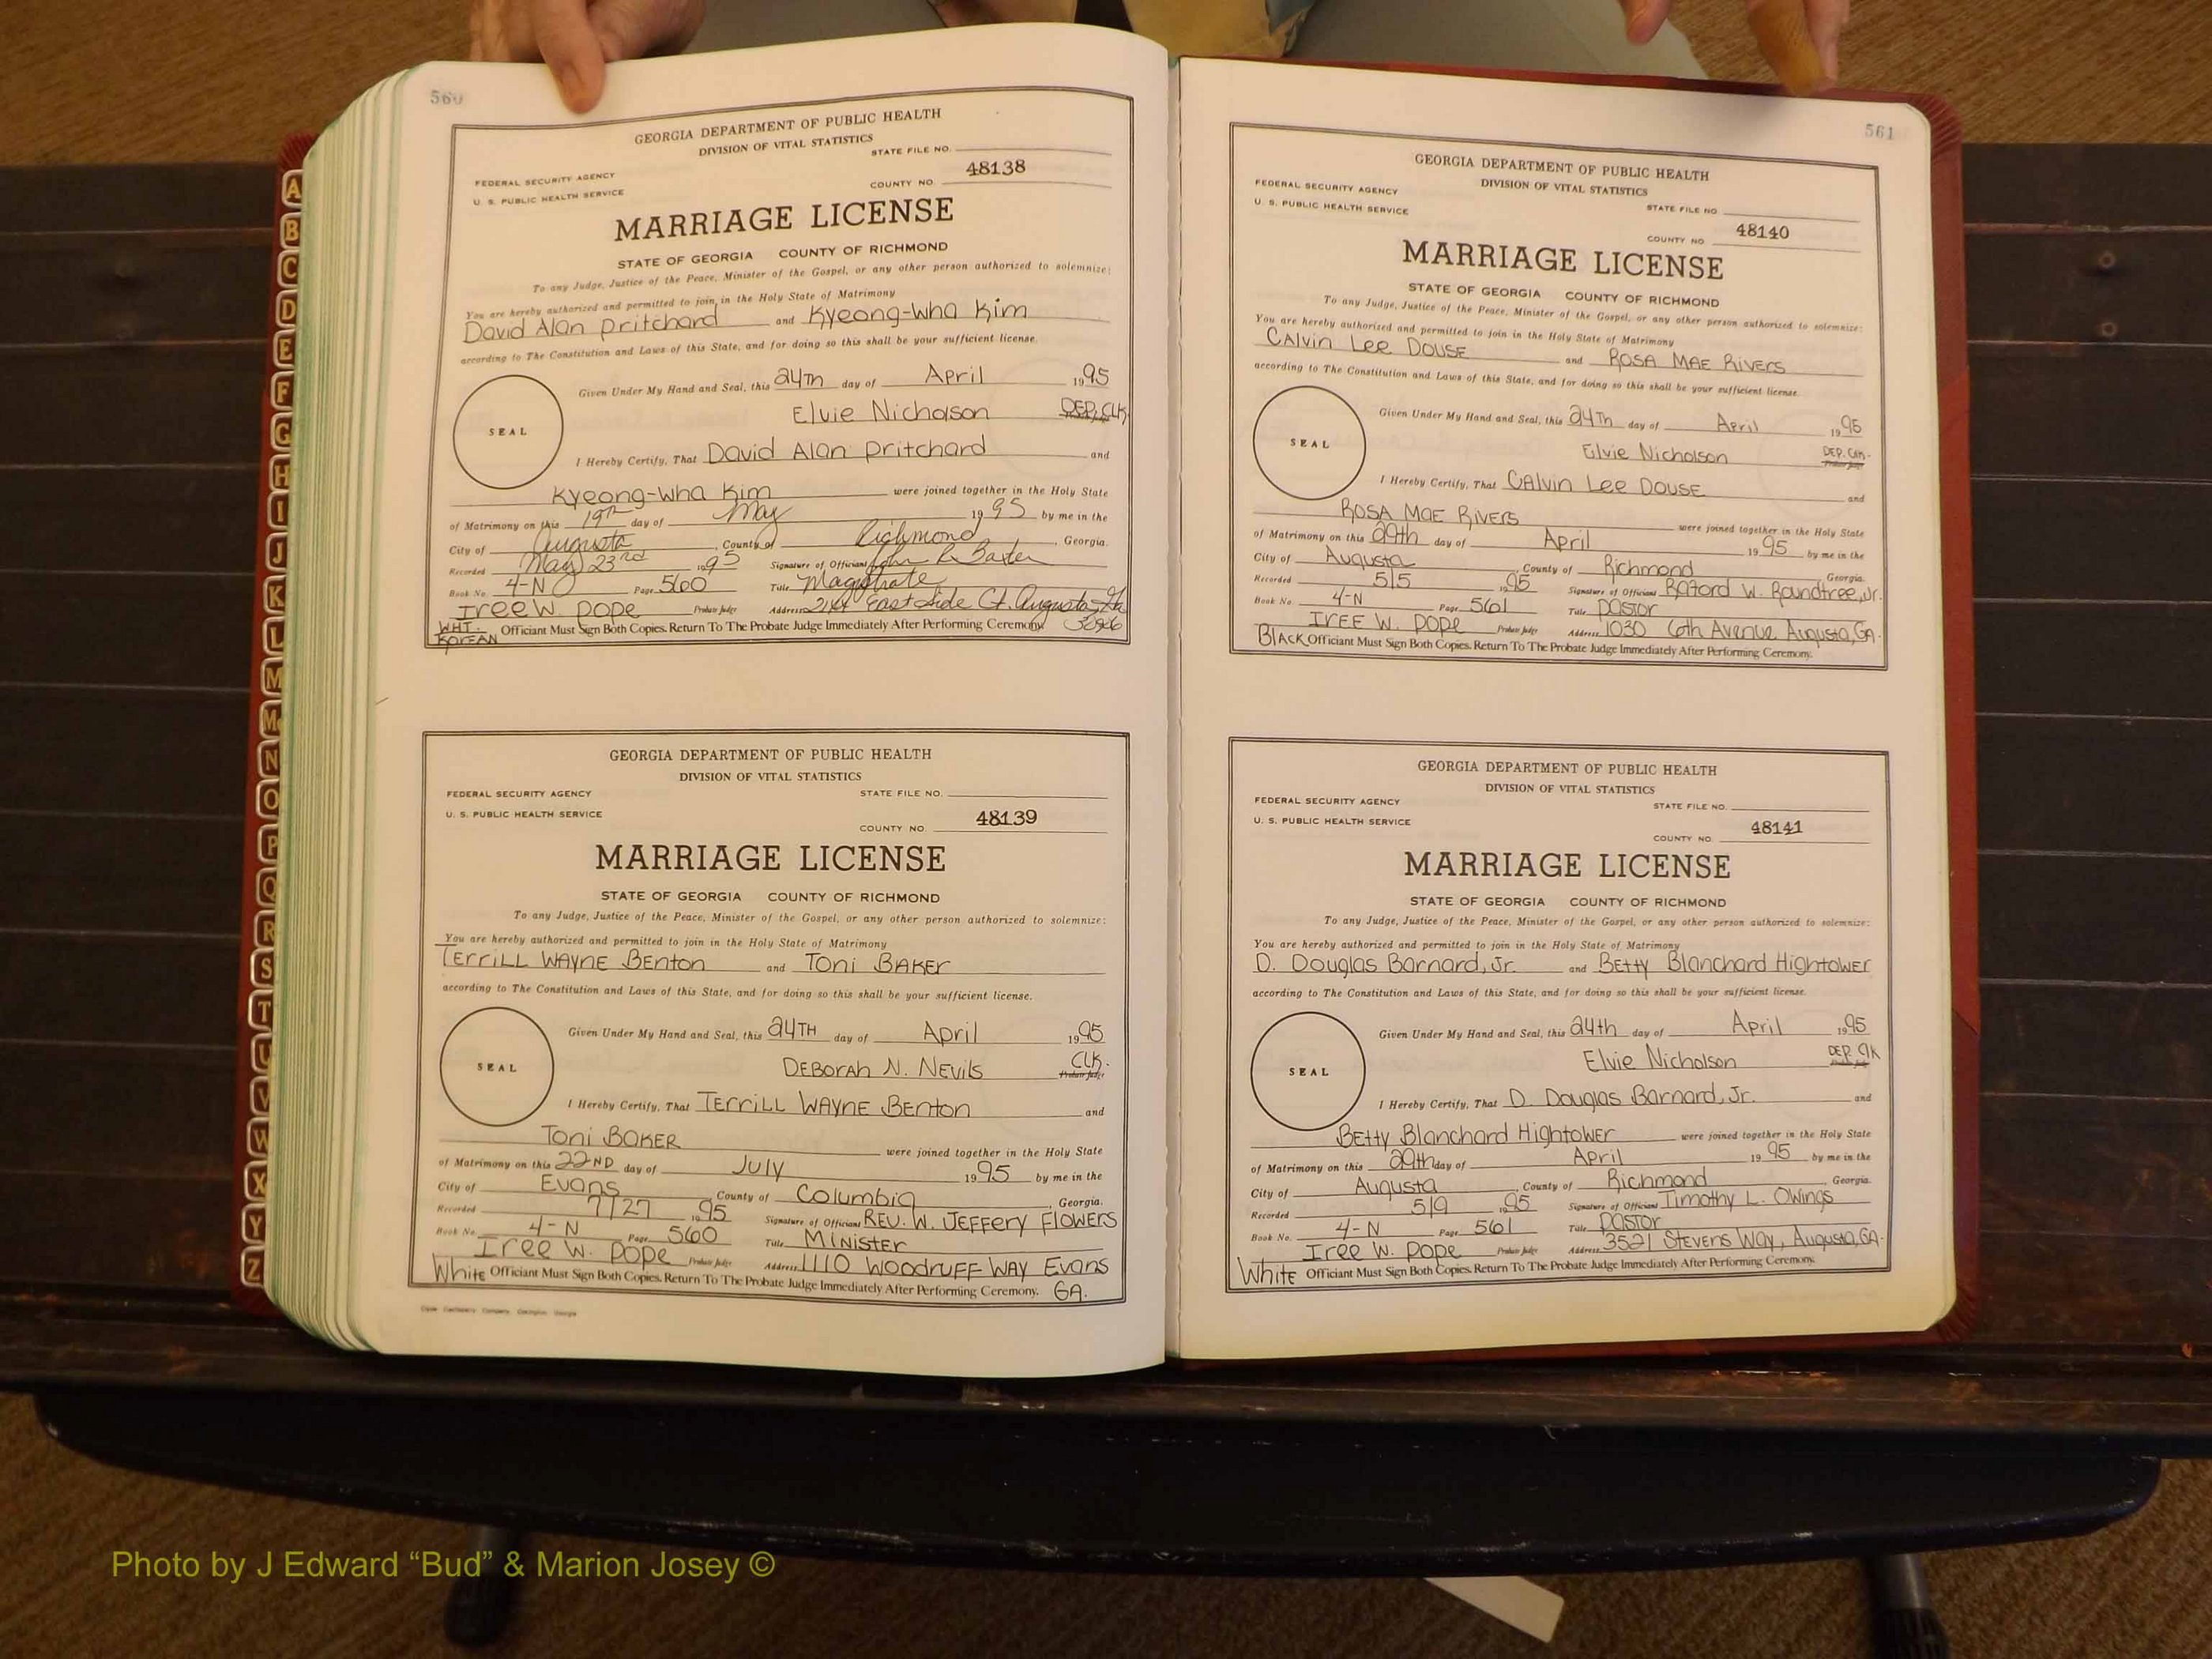 560
GEORGIA DEPARTMENT OF PUBLIC HEALTH
DIVISION OF VITAL STATISTICS
STATE FILE NO.
FEDERAL SECURITY AGENCY
U. S. PUBLIC HEALTH SERVICE
COUNTY NO. 48138
MARRIAGE LICENSE
STATE OF GEORGIA COUNTY OF RICHMOND
To any Judge, Justice of the Peace, Minister of the Gospel, or any other person authorized to solemnize:
You are hereby authorized and permitted to join in the Holy State of Matrimony
David Alan Pritchard and Kyeong-Wha Kim
according to The Constitution and Laws of this State, and for doing so this shall be your sufficient license.
Given Under My Hand and Seal, this 24TH day of April 1995
SEAL
Elvie Nicholson DEP. CLK.
I Hereby Certify, That David Alan Pritchard and
Kyeong-Wha Kim were joined together in the Holy State
of Matrimony on this 19th day of May 1995 by me in the
City of Augusta, County of Richmond, Georgia.
Recorded May 23rd 1995 Signature of Official John R. Baxter
Book No. 4-N Page 560 Title Magistrate
Iree W. Pope Probate Judge Address East Side Ct. Augusta, Ga
WHT. Officiant Must Sign Both Copies. Return To The Probate Judge Immediately After Performing Ceremony.
KOREAN
GEORGIA DEPARTMENT OF PUBLIC HEALTH
DIVISION OF VITAL STATISTICS
FEDERAL SECURITY AGENCY STATE FILE NO.
U. S. PUBLIC HEALTH SERVICE
COUNTY NO. 48139
MARRIAGE LICENSE
STATE OF GEORGIA COUNTY OF RICHMOND
To any Judge, Justice of the Peace, Minister of the Gospel, or any other person authorized to solemnize:
You are hereby authorized and permitted to join in the Holy State of Matrimony
TErrILL WAYNE BENTON and Toni BAKER
according to The Constitution and Laws of this State, and for doing so this shall be your sufficient license.
Given Under My Hand and Seal, this 24TH day of April 1995
SEAL
DEBOrah N. NEvils CLK. Probate Judge
I Hereby Certify, That TErrILL WAYNE BENTON and
Toni BAKER were joined together in the Holy State
of Matrimony on this 22ND day of July 1995 by me in the
City of Evans, County of Columbia, Georgia.
Recorded 7/27 1995 Signature of Official REV. W. JEFFERY FLOWERS
Book No. 4-N Page 560 Title MINISTER
Iree W. Pope Probate Judge Address 1110 WOODRUFF WAY EVANS
White Officiant Must Sign Both Copies. Return To The Probate Judge Immediately After Performing Ceremony. GA.
561
GEORGIA DEPARTMENT OF PUBLIC HEALTH
DIVISION OF VITAL STATISTICS
FEDERAL SECURITY AGENCY
U. S. PUBLIC HEALTH SERVICE
STATE FILE NO.
COUNTY NO. 48140
MARRIAGE LICENSE
STATE OF GEORGIA COUNTY OF RICHMOND
To any Judge, Justice of the Peace, Minister of the Gospel, or any other person authorized to solemnize:
You are hereby authorized and permitted to join in the Holy State of Matrimony
CAlvin Lee DOUSE and ROSA MAE RIVERS
according to The Constitution and Laws of this State, and for doing so this shall be your sufficient license.
Given Under My Hand and Seal, this 24Th day of April 1995
SEAL
Elvie Nicholson DEP. Clk. Probate Judge
I Hereby Certify, That CAlvin Lee DOUSE and
ROSA MAE RIVERS were joined together in the Holy State
of Matrimony on this 29th day of April 1995 by me in the
City of Augusta, County of Richmond Georgia.
Recorded 5/5 1995 Signature of Official W. Roundtree, Jr.
Book No. 4-N Page 561 Title Pastor
IREE W. Pope Probate Judge Address 1030 6th Avenue Augusta, GA.
BLACK Officiant Must Sign Both Copies. Return To The Probate Judge Immediately After Performing Ceremony.
GEORGIA DEPARTMENT OF PUBLIC HEALTH
DIVISION OF VITAL STATISTICS
FEDERAL SECURITY AGENCY STATE FILE NO.
U. S. PUBLIC HEALTH SERVICE
COUNTY NO. 48141
MARRIAGE LICENSE
STATE OF GEORGIA COUNTY OF RICHMOND
To any Judge, Justice of the Peace, Minister of the Gospel, or any other person authorized to solemnize:
You are hereby authorized and permitted to join in the Holy State of Matrimony
D. Douglas Barnard, Jr. and Betty Blanchard Hightower
according to The Constitution and Laws of this State, and for doing so this shall be your sufficient license.
Given Under My Hand and Seal, this 24th day of April 1995
SEAL
Elvie Nicholson DEP. Clk Probate Judge
I Hereby Certify, That D. Douglas Barnard, Jr. and
Betty Blanchard Hightower were joined together in the Holy State
of Matrimony on this 29th day of April 1995 by me in the
City of Augusta, County of Richmond, Georgia.
Recorded 5/9 1995 Signature of Official Timothy L. Owings
Book No. 4-N Page 561 Title Pastor
Iree W. Pope Probate Judge Address 3521 Stevens Way, Augusta, GA.
White Officiant Must Sign Both Copies. Return To The Probate Judge Immediately After Performing Ceremony.
A
B
C
D
E
F
G
H
I
J
K
L
M
Mc
N
O
P
Q
R
S
T
U
V
W
X
Y
Z
Photo by J Edward “Bud” & Marion Josey ©